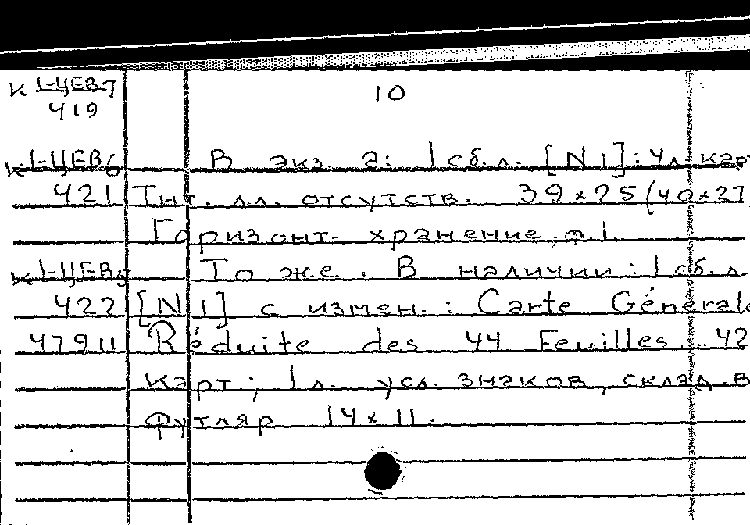 К 1-ЦЕВ/7
419
10
К 1-ЦЕВ/6 В экз. 2: 1 сб.л. [N 1]: 4 л. карт
421 Тит. лл. отсутств. 39x25 (40x27
Горизонт. хранение, п. 1.
К 1-ЦЕВ/5 То же. В наличии: 1 сб.л.
422 [N 1] с измен.: Carte Générale
47911 Réduite des 44 Feuilles.. 42
карт; 1 л. усл. знаков, склад. в
футляр 14x11.